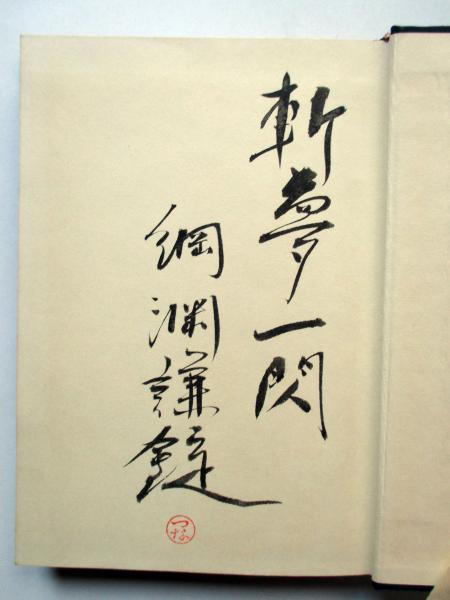 斬夢一閃
綱淵謙錠
つな